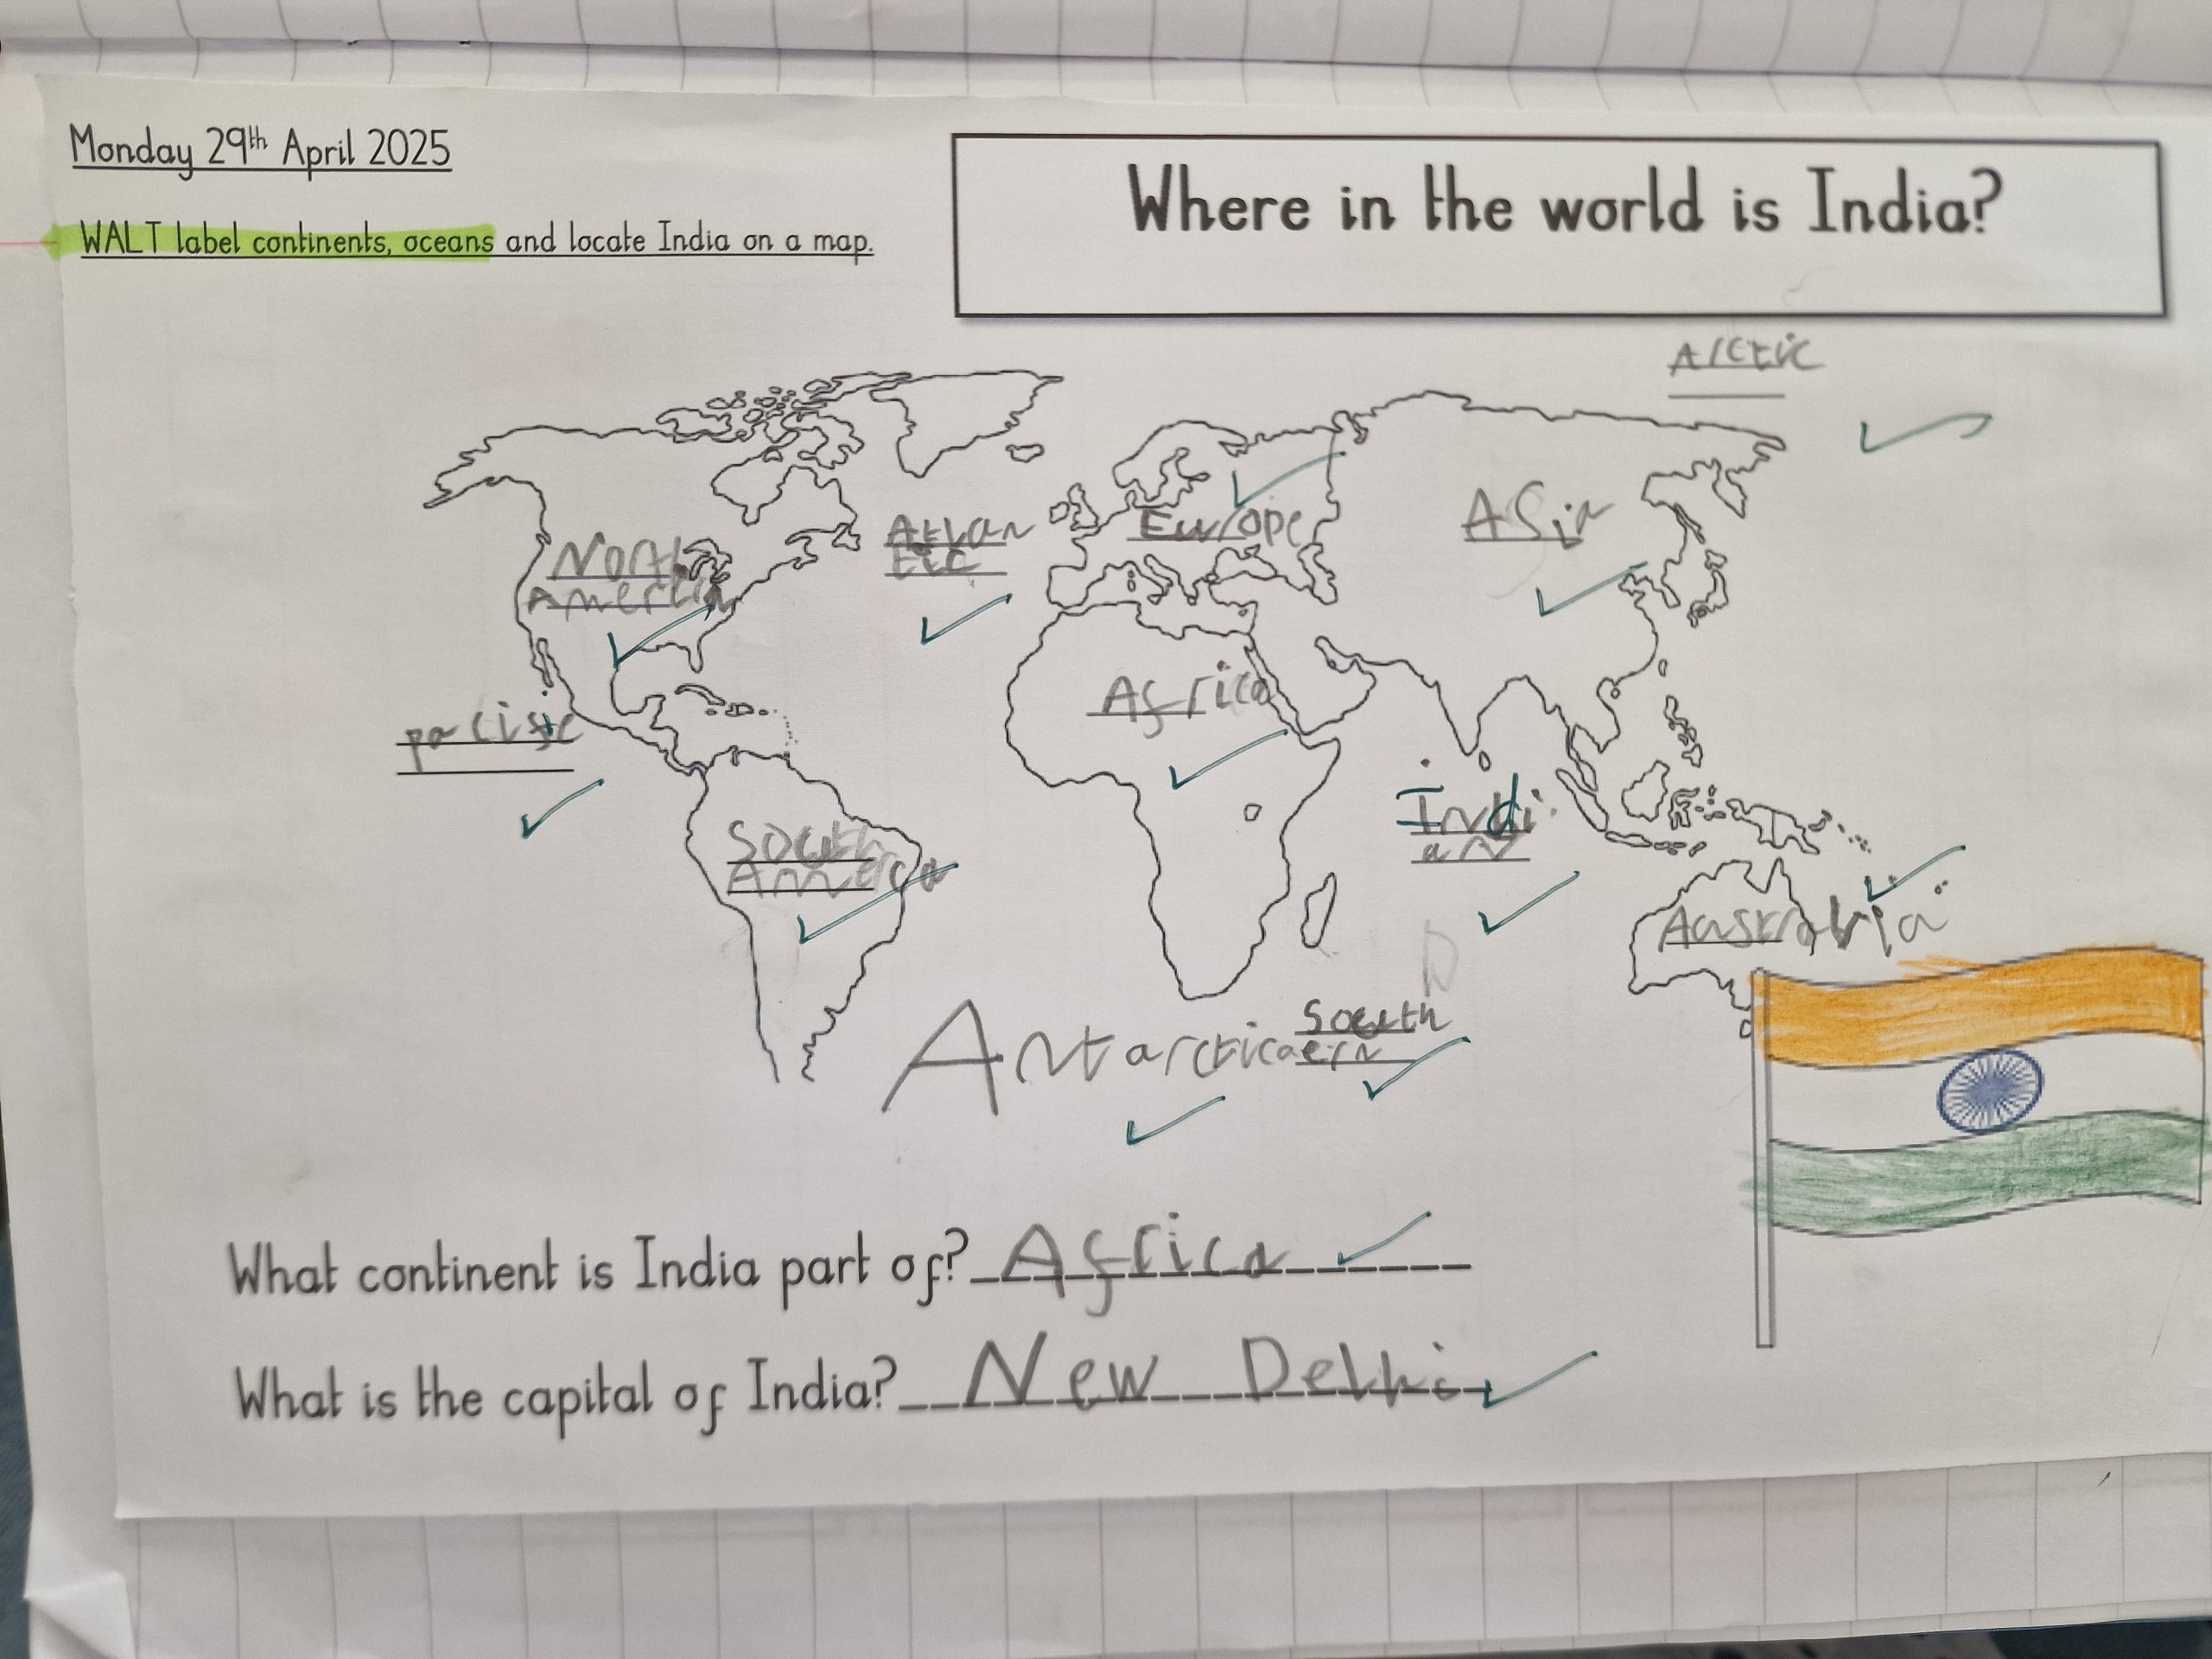 Monday 29th April 2025
Where in the world is India?
WALT label continents, oceans and locate India on a map.
Arctic
North
America
Atlan
tic
Europe
Asia
Africa
pacific
Indi
an
South
Ameca
Aastralia
Antarctica
South
ern
What continent is India part of? Africa
What is the capital of India? New Delhi